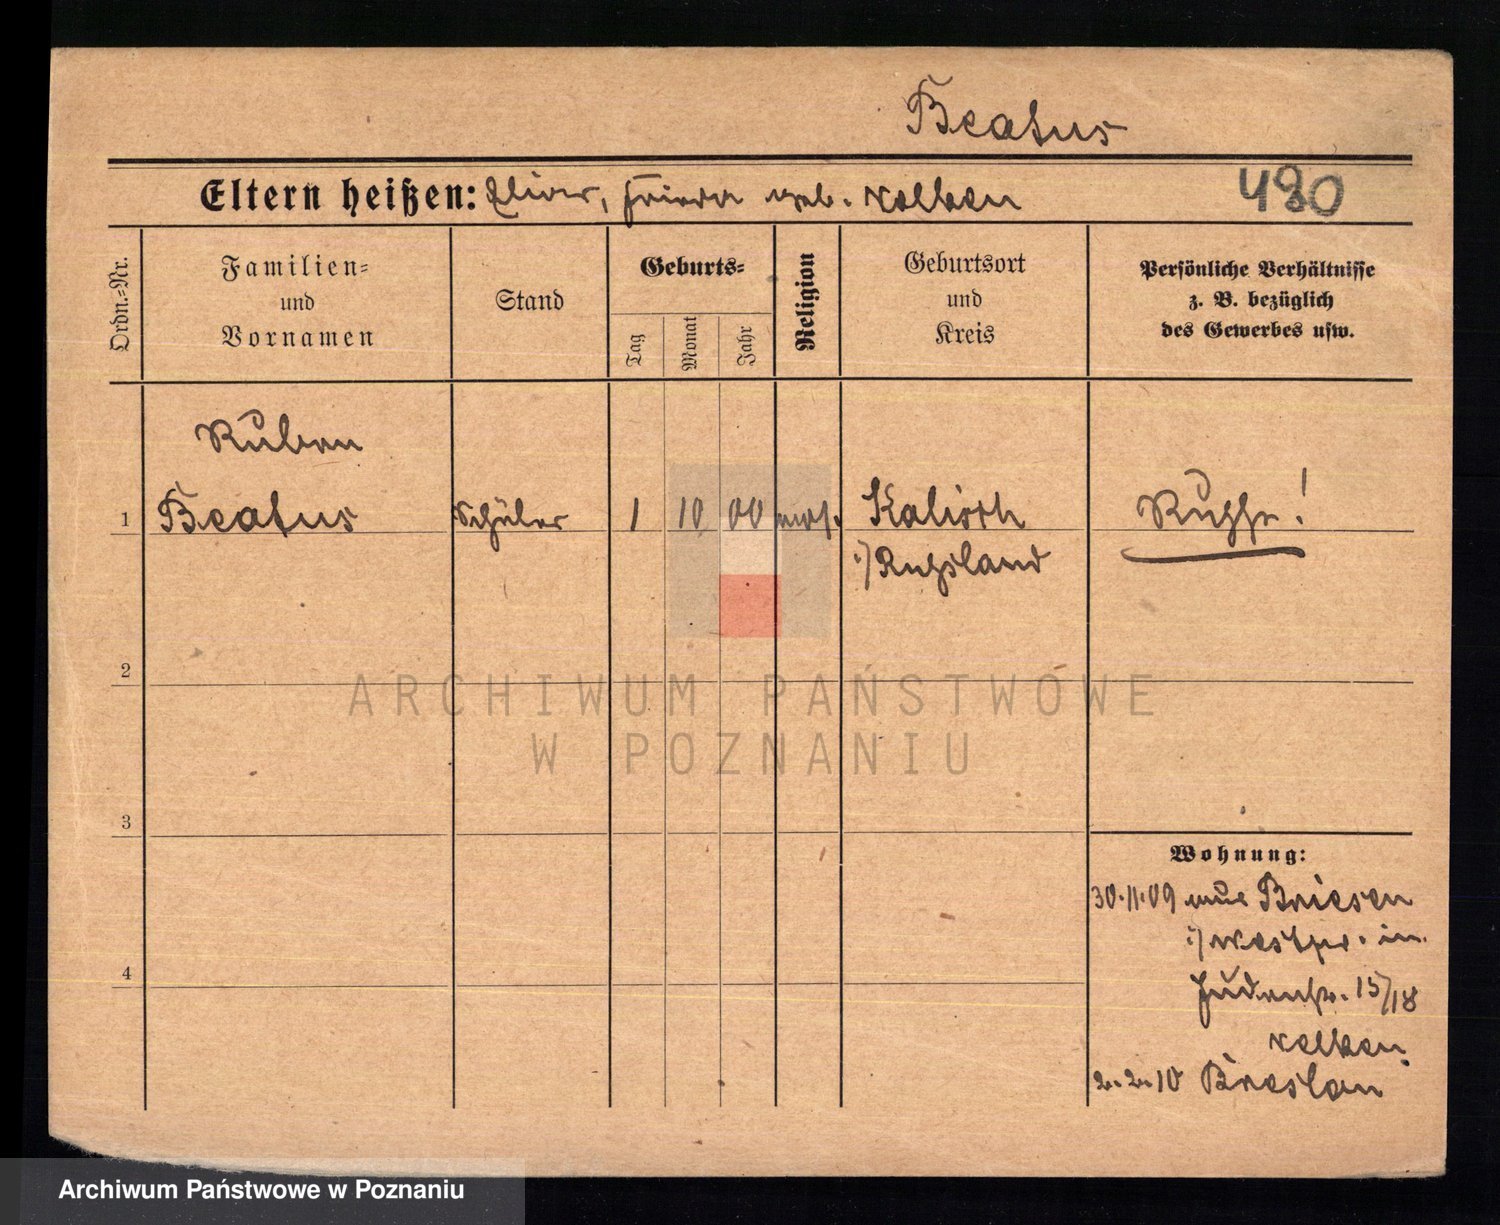 Beatus
Eltern heißen: Elias, Frieda geb. Kelken
480
Ordn.-Nr.
Familien-
und
Vornamen
Stand
Geburts-
Tag
Monat
Jahr
Religion
Geburtsort
und
Kreis
Persönliche Verhältnisse
z. B. bezüglich
des Gewerbes usw.
Ruben
1 Beatus Schüler 1 10 00 mos. Kalisch Russe!
i/ Russland
2
3
4
Wohnung:
30.11.09 aus Briesen
i/ Westpr. in
Judenstr. 15/18
Kelken.
2.2.10 Breslau
ARCHIWUM PAŃSTWOWE
W POZNANIU
Archiwum Państwowe w Poznaniu